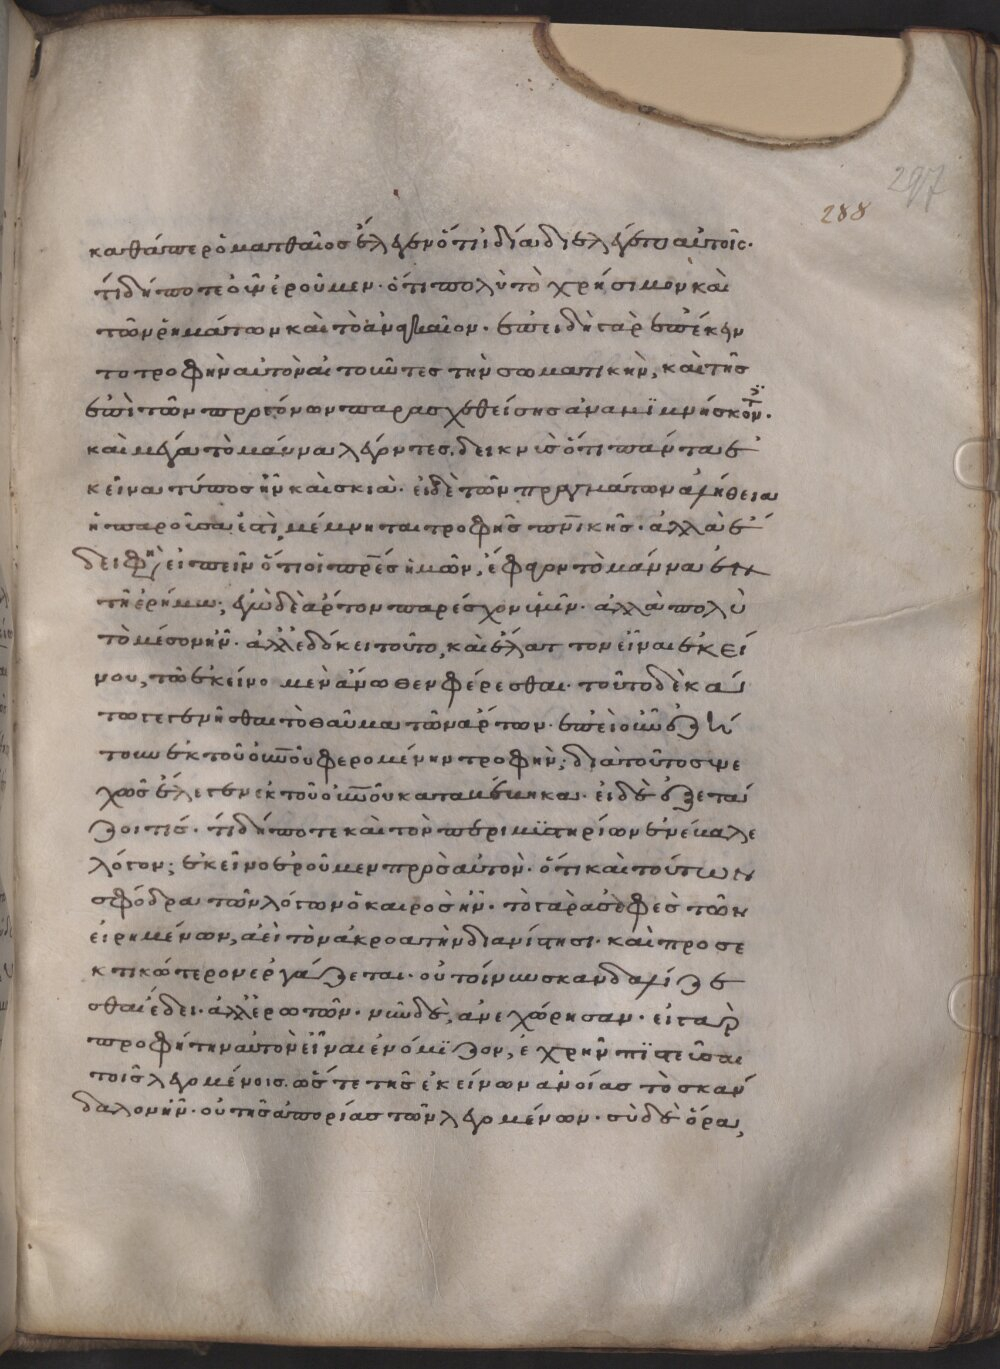 297
288
καθάπερ ὁ ματθαῖοσ ἔλεγεν ὅτι ἰδία διελέγετο αὐτοῖς·
τί δήποτε οὖν ἐροῦμεν· ὅτι πολὺ τὸ χρήσιμον καὶ
τῶν ῥημάτων καὶ τὸ ἀναγκαῖον· ἐπειδὴ γὰρ ἐπέκειν
το τροφὴν αὐτὸν αἰτοῦντες τὴν σωματικὴν, καὶ τῆσ
ἐπὶ τῶν προγόνων παρασχεθείσησ ἀναμϊμνήσκοντ·
καὶ μέγα τὸ μάννα λέγοντεσ, δεικνὺσ ὅτι πάντα ἐ
κεῖνα τύποσ ἦν καὶ σκιὰ· ἡ δὲ τῶν πραγμάτων ἀλήθεια
ἡ παροῦσα ἐστὶ, μέμνηται τροφῆσ πνικῆσ· ἀλλὰ ἔ
δει φη εἰπεῖν ὅτι οἱ πρεσ ἡμῶν, ἔφαγον τὸ μάννα ἐν
τῆ ἐρήμω, ἐγὼ δὲ ἄρτον παρέσχον ὑμῖν· ἀλλὰ πολὺ
τὸ μέσον ἦν· ἀλλ' ἐδόκει τοῦτο, καὶ ἔλαττον εἶναι ἐκεί
νου, τῶ ἐκεῖνο μὲν ἄνωθεν φέρεσθαι· τοῦτο δὲ κά
τω γεγενῆσθαι τὸ θαῦμα τῶν ἄρτων· ἐπεὶ οὖν ἐζή
τουν ἐκ τοῦ οὐνοῦ φερομένην τροφὴν, διὰ τοῦτο συνε
χῶσ ἔλεγεν ἐκ τοῦ οὐνοῦ καταβέβηκα· εἰ δὲ ἐξετά
ζοι τισ· τί δήποτε καὶ τὸν περὶ μϋστηρίων ἐνέβαλε
λόγον; ἐκεῖνο ἐροῦμεν πρὸσ αὐτὸν· ὅτι καὶ τούτων
σφόδρα τῶν λόγων ὁ καιρὸσ ἦν· τὸ γὰρ ἀσαφὲσ τῶν
εἰρημένων, ἀεὶ τὸν ἀκροατὴν διανίστησι· καὶ προσε
κτικώτερον ἐργάζεται· οὐ τοίνυν σκανδαλίζε
σθαι ἔδει· ἀλλ' ἐρωτᾶν· νῦν δὲ, ἀνεχώρησαν· εἰ γὰρ
προφήτην αὐτὸν εἶναι ἐνόμϊζον, ἐχρῆν πϊστεῦσαι
τοῖσ λεγομένοισ. ὥστε τῆσ ἐκείνων ἀνοίασ τὸ σκάν
δαλον ἦν· οὐ τῆσ ἀπορίασ τῶν λεγομένων· σὺ δὲ ὅρα,